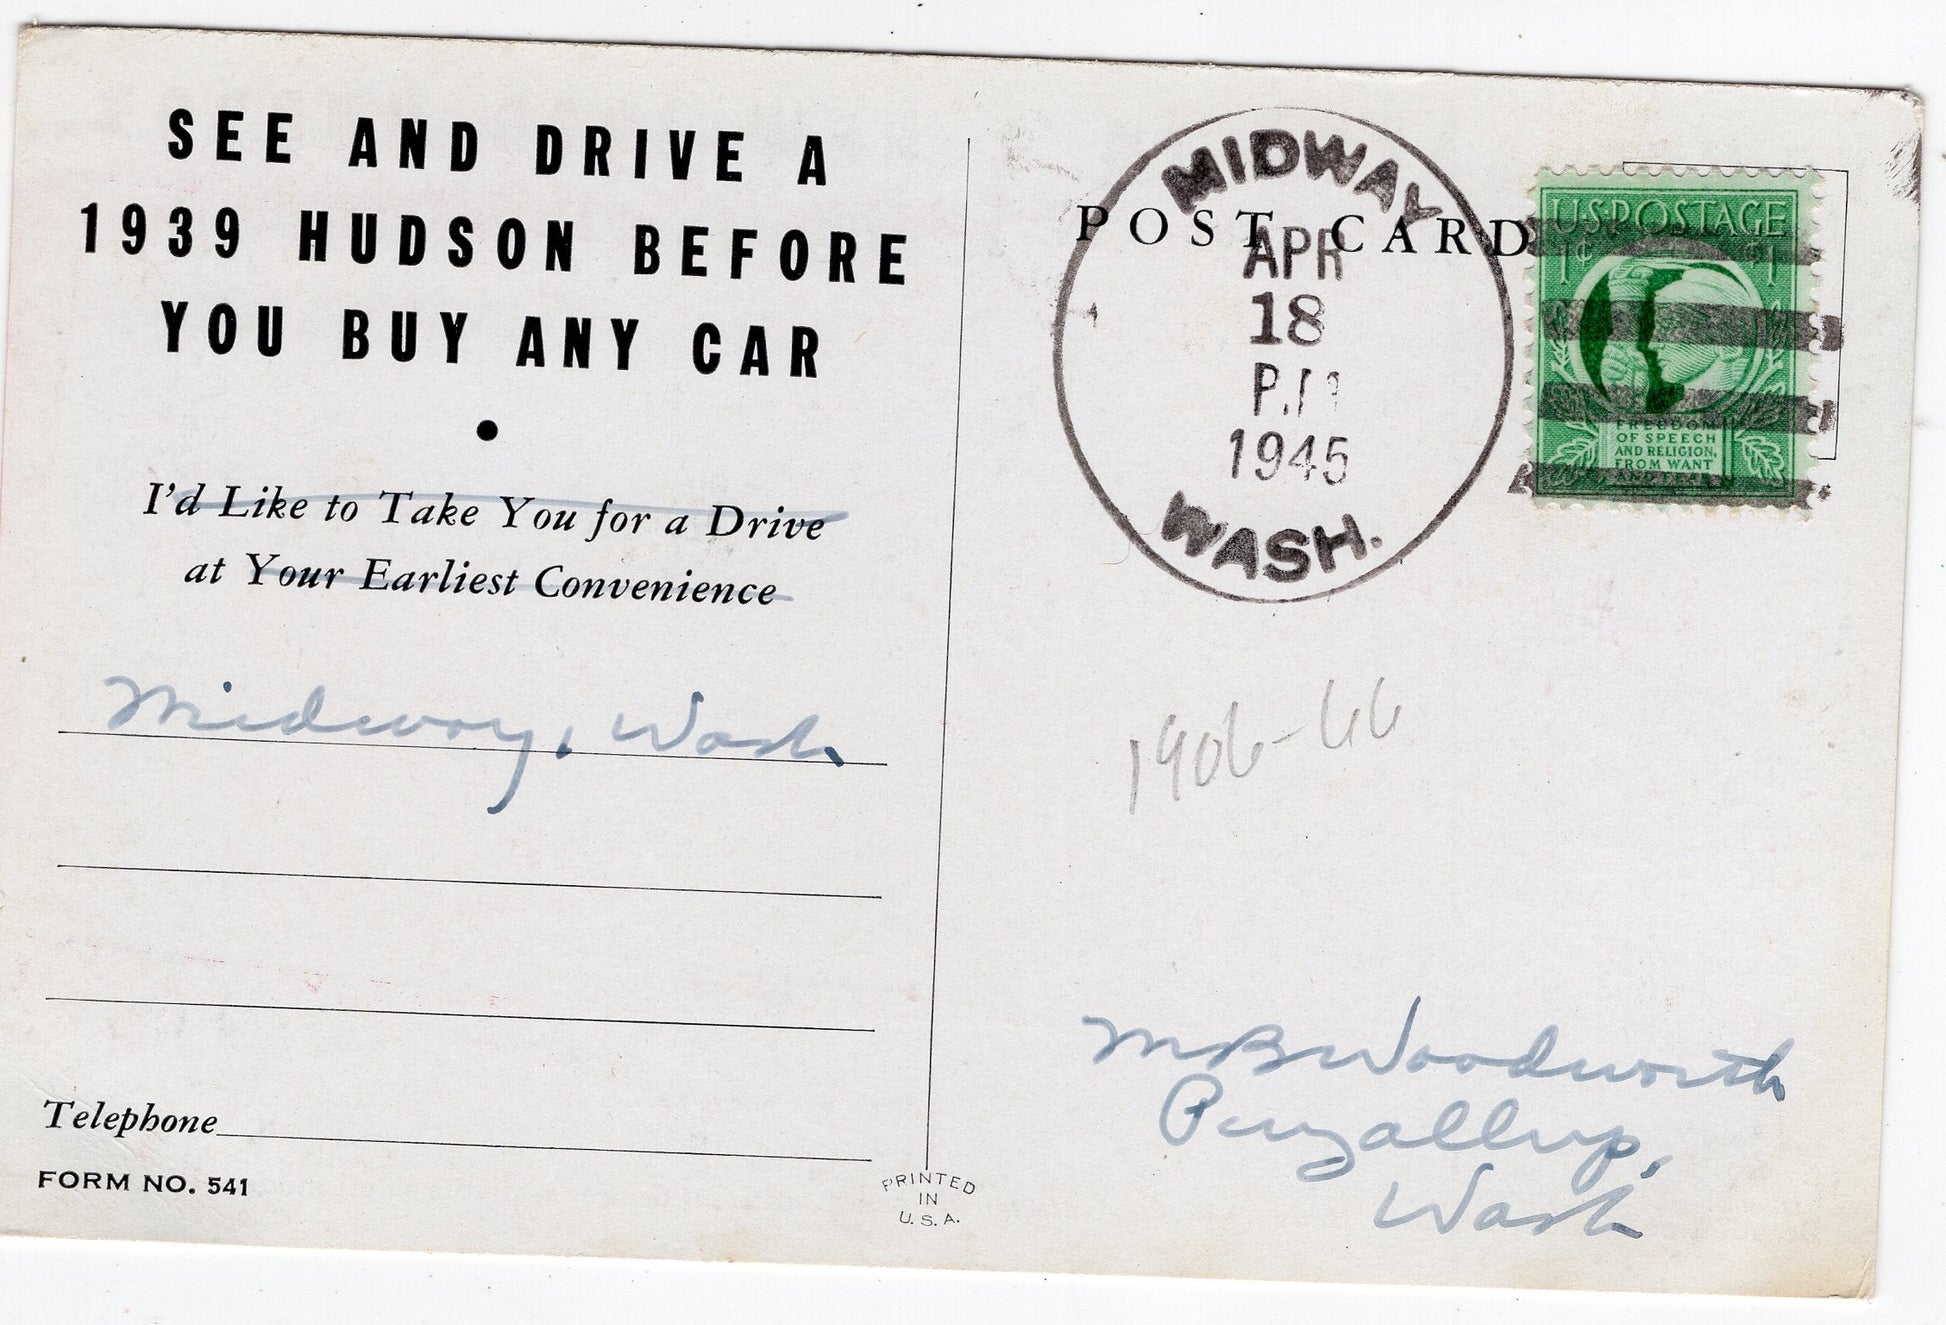 SEE AND DRIVE A
1939 HUDSON BEFORE
YOU BUY ANY CAR
I'd Like to Take You for a Drive
at Your Earliest Convenience
Midway, Wash
Telephone
FORM NO. 541
PRINTED
IN
U. S. A.
POST CARD
MIDWAY
APR
18
P.M
1945
WASH.
U.S. POSTAGE
1¢ 1
FREEDOM
OF SPEECH
AND RELIGION,
FROM WANT
AND FEAR
1906-66
M B Woodworth
Puyallup,
Wash